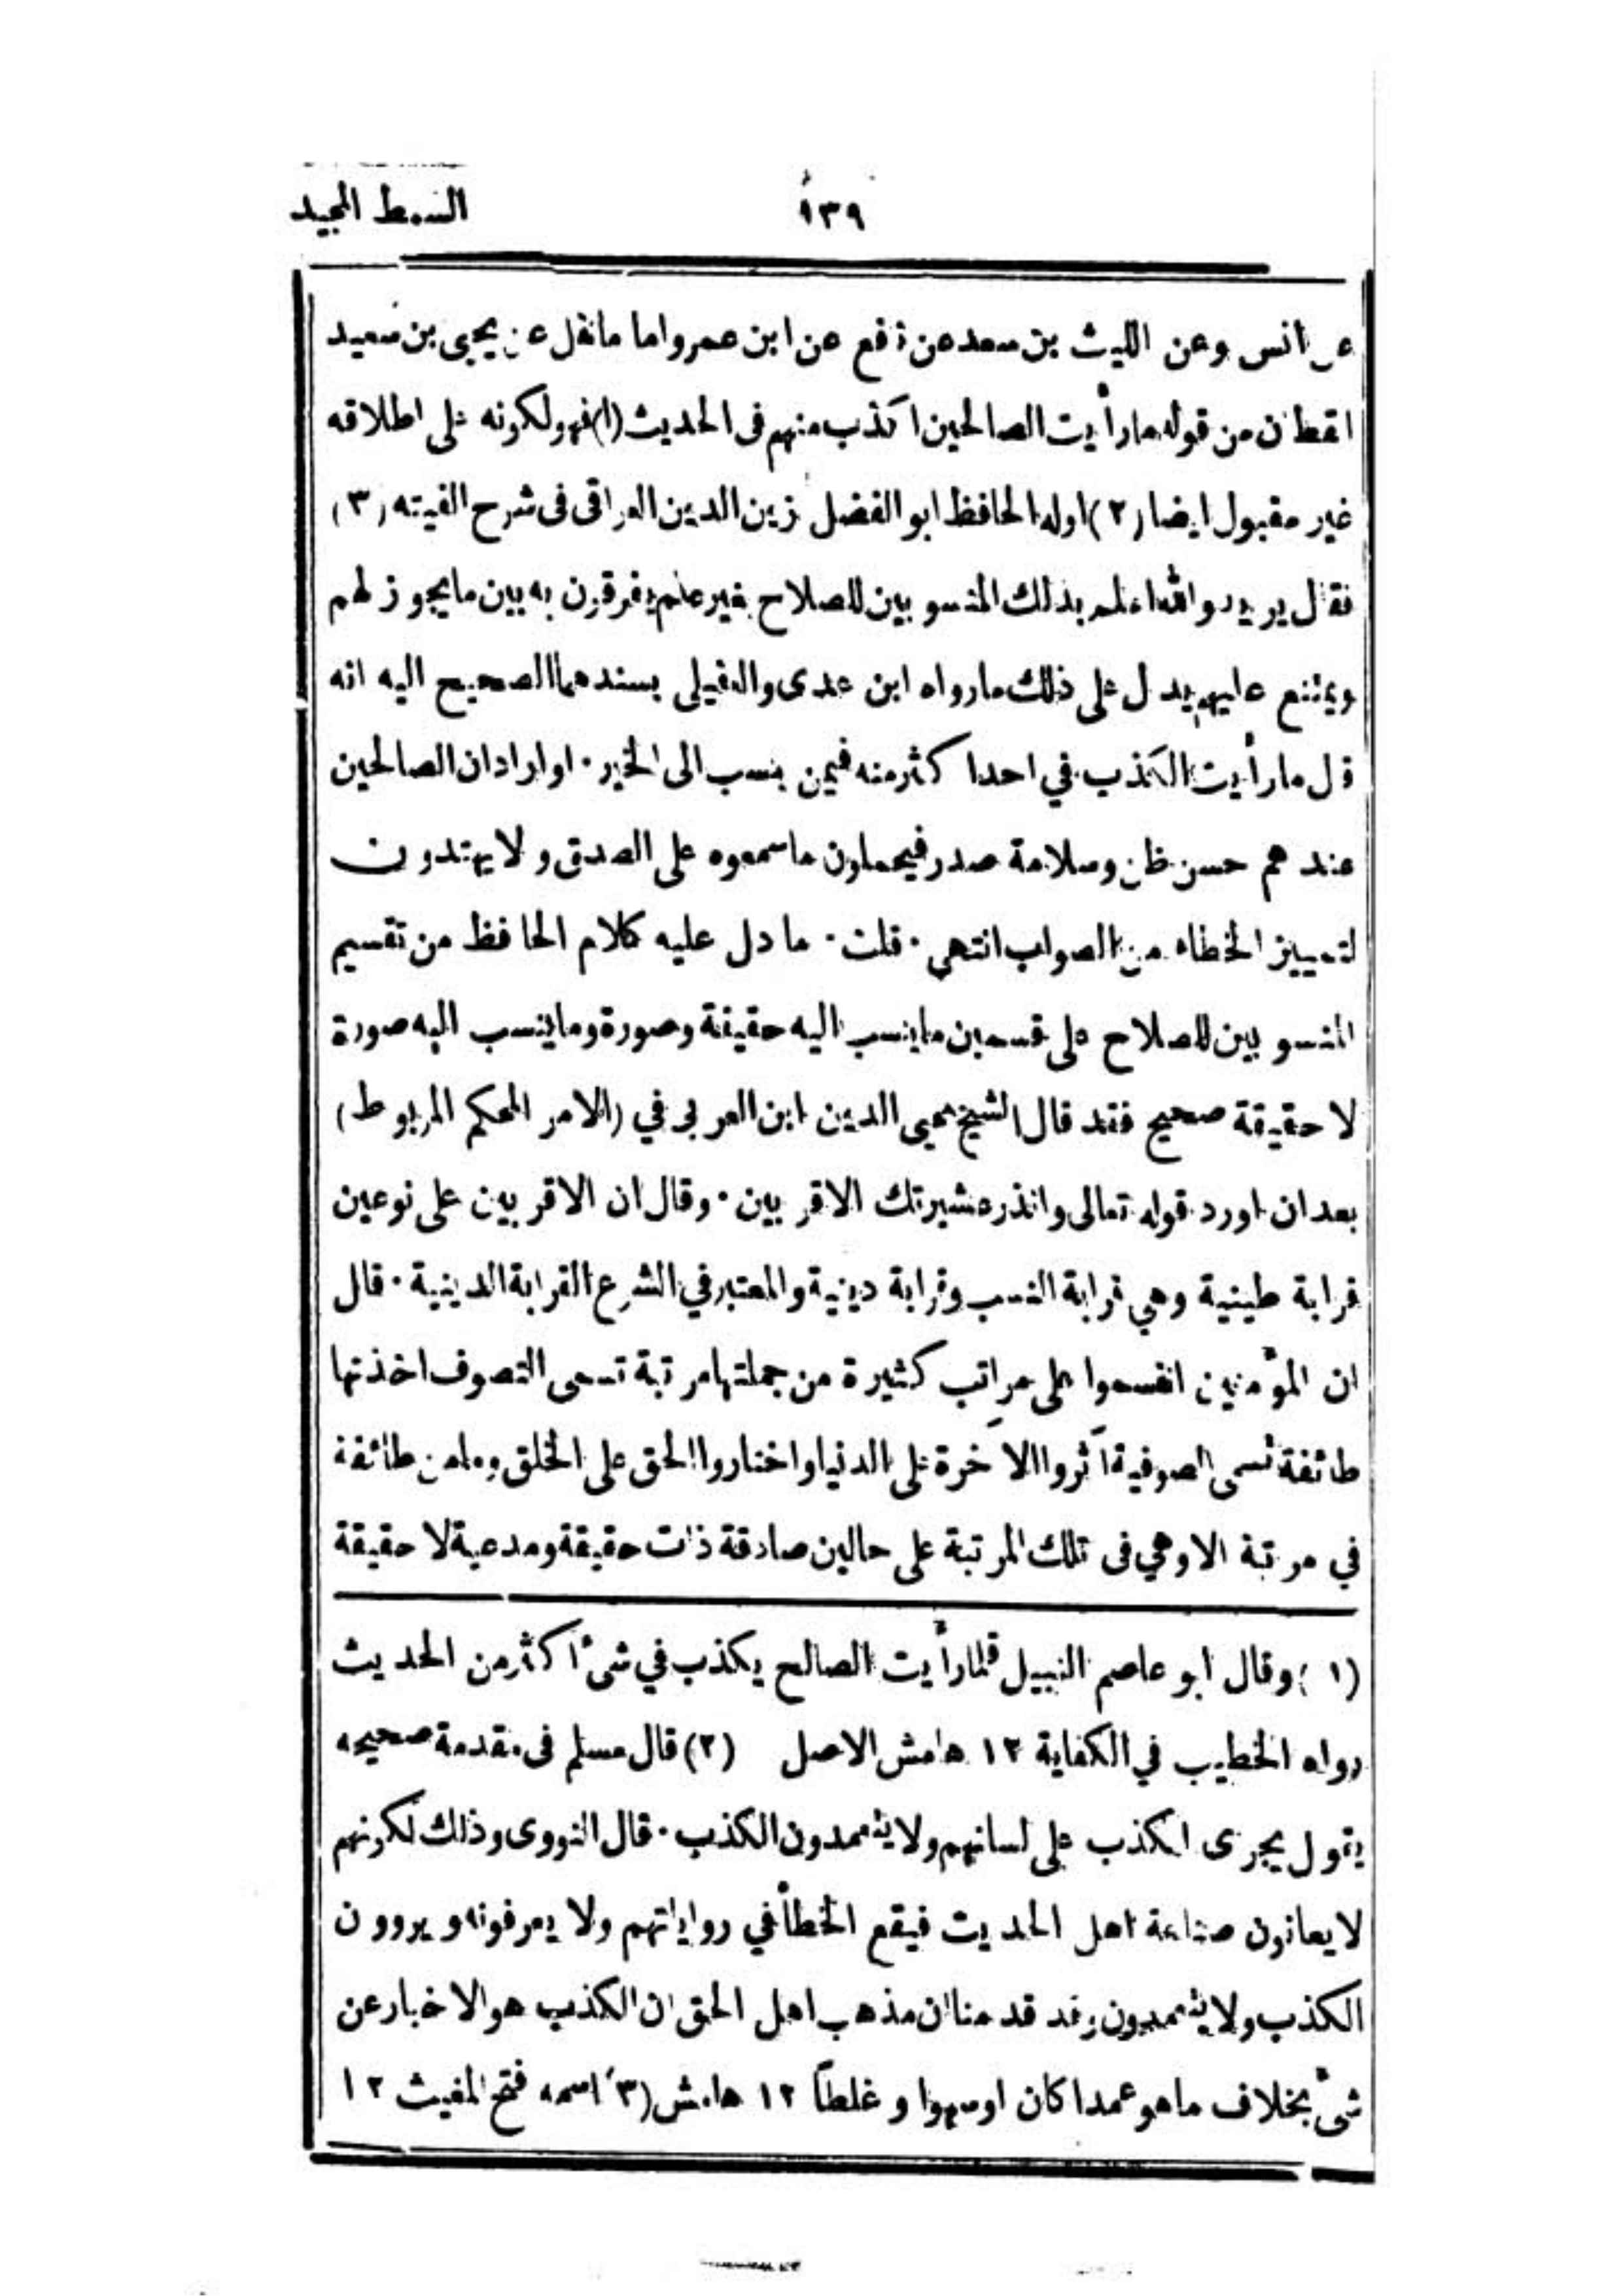 ١٣٩ السمط المجيد
عن انس وعن الليث بن سعد عن نافع عن ابن عمر واما ما نقل عن يحيى بن سعيد
القطان من قوله ما رأيت الصالحين اكذب منهم فى الحديث (١) فهو لكونه على اطلاقه
غير مقبول ايضا (٢) اوله الحافظ ابو الفضل زين الدين العراقى فى شرح الفيته (٣)
فقال يريد والله اعلم بذلك المنسوبين للصلاح بغير علم يفرقون به بين ما يجوز لهم
ويمتنع عليهم يدل على ذلك ما رواه ابن عدى والعقيلى بسندهما الصحيح اليه انه
قال ما رأيت الكذب في احد اكثر منه فيمن ينسب الى الخير · او اراد ان الصالحين
عندهم حسن ظن وسلامة صدر فيحملون ما سمعوه على الصدق ولا يهتدون
لتمييز الخطاء من الصواب انتهي · قلت · ما دل عليه كلام الحافظ من تقسيم
المنسوبين للصلاح على قسمين ما ينسب اليه حقيقة وصورة وما ينسب اليه صورة
لا حقيقة صحيح فقد قال الشيخ محيى الدين ابن العربى في (الامر المحكم المربوط)
بعد ان اورد قوله تعالى وانذر عشيرتك الاقربين · وقال ان الاقربين على نوعين
قرابة طينية وهي قرابة النسب وقرابة دينية والمعتبر في الشرع القرابة الدينية · قال
ان المؤمنين انقسموا على مراتب كثيرة من جملتها مرتبة تسمى التصوف اخذتها
طائفة تسمى الصوفية آثروا الآخرة على الدنيا واختاروا الحق على الخلق وما من طائفة
في مرتبة الا وهي فى تلك المرتبة على حالين صادقة ذات حقيقة ومدعية لا حقيقة
(١) وقال ابو عاصم النبيل قلما رأيت الصالح يكذب في شئ اكثر من الحديث
رواه الخطيب في الكفاية ١٢ هامش الاصل (٢) قال مسلم فى مقدمة صحيحه
يقول يجرى الكذب على لسانهم ولا يتعمدون الكذب · قال النووى وذلك لكونهم
لا يعانون صناعة اهل الحديث فيقع الخطأ في رواياتهم ولا يعرفونه ويروون
الكذب ولا يتعمدون وقد قدمنا ان مذهب اهل الحق ان الكذب هو الاخبار عن
شئ بخلاف ما هو عمدا كان او سهوا و غلطاً ١٢ هامش (٣) اسمه فتح المغيث ١٢